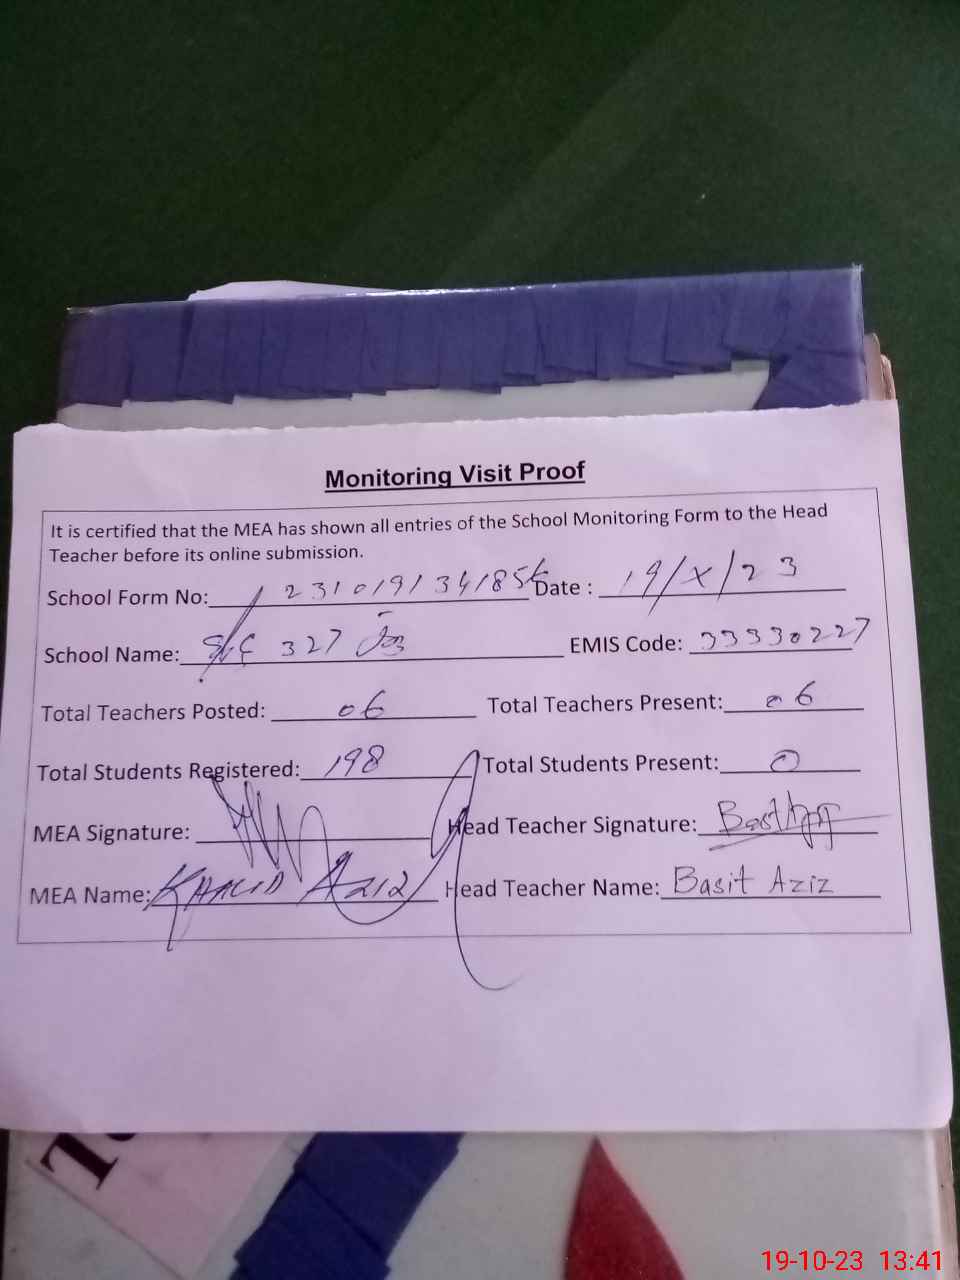 Monitoring Visit Proof
It is certified that the MEA has shown all entries of the School Monitoring Form to the Head
Teacher before its online submission.
School Form No: 2310191341856 Date : 19/X/23
School Name: 327 EMIS Code: 33330227
Total Teachers Posted: 06 Total Teachers Present: 06
Total Students Registered: 198 Total Students Present: 0
MEA Signature: Head Teacher Signature:
MEA Name: KHALID AZIZ Head Teacher Name: Basit Aziz
19-10-23 13:41